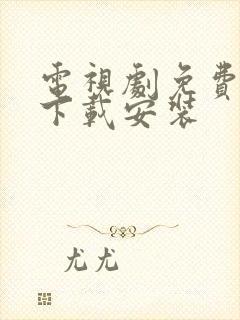 電視劇免費
下載安裝
尤尤